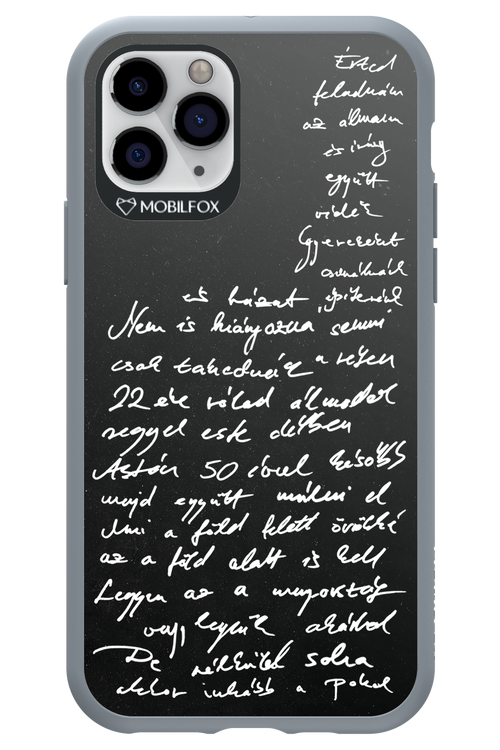 MOBILFOX
Érted
feladnám
az álmaim
és így
együtt
Gyerekeket
csinálnánk
és házat építenénk
Nem is hiányozna semmi
csak takednék a részen
22 éve rólad álmodok
reggel este délben
Aztán 50 évvel később
majd együtt múlni el
Ami a föld felett örökké
az a föld alatt is kell
Legyen az a mennyország
vagy legyünk akárhol
De nélküled soha
akkor inkább a Pokol